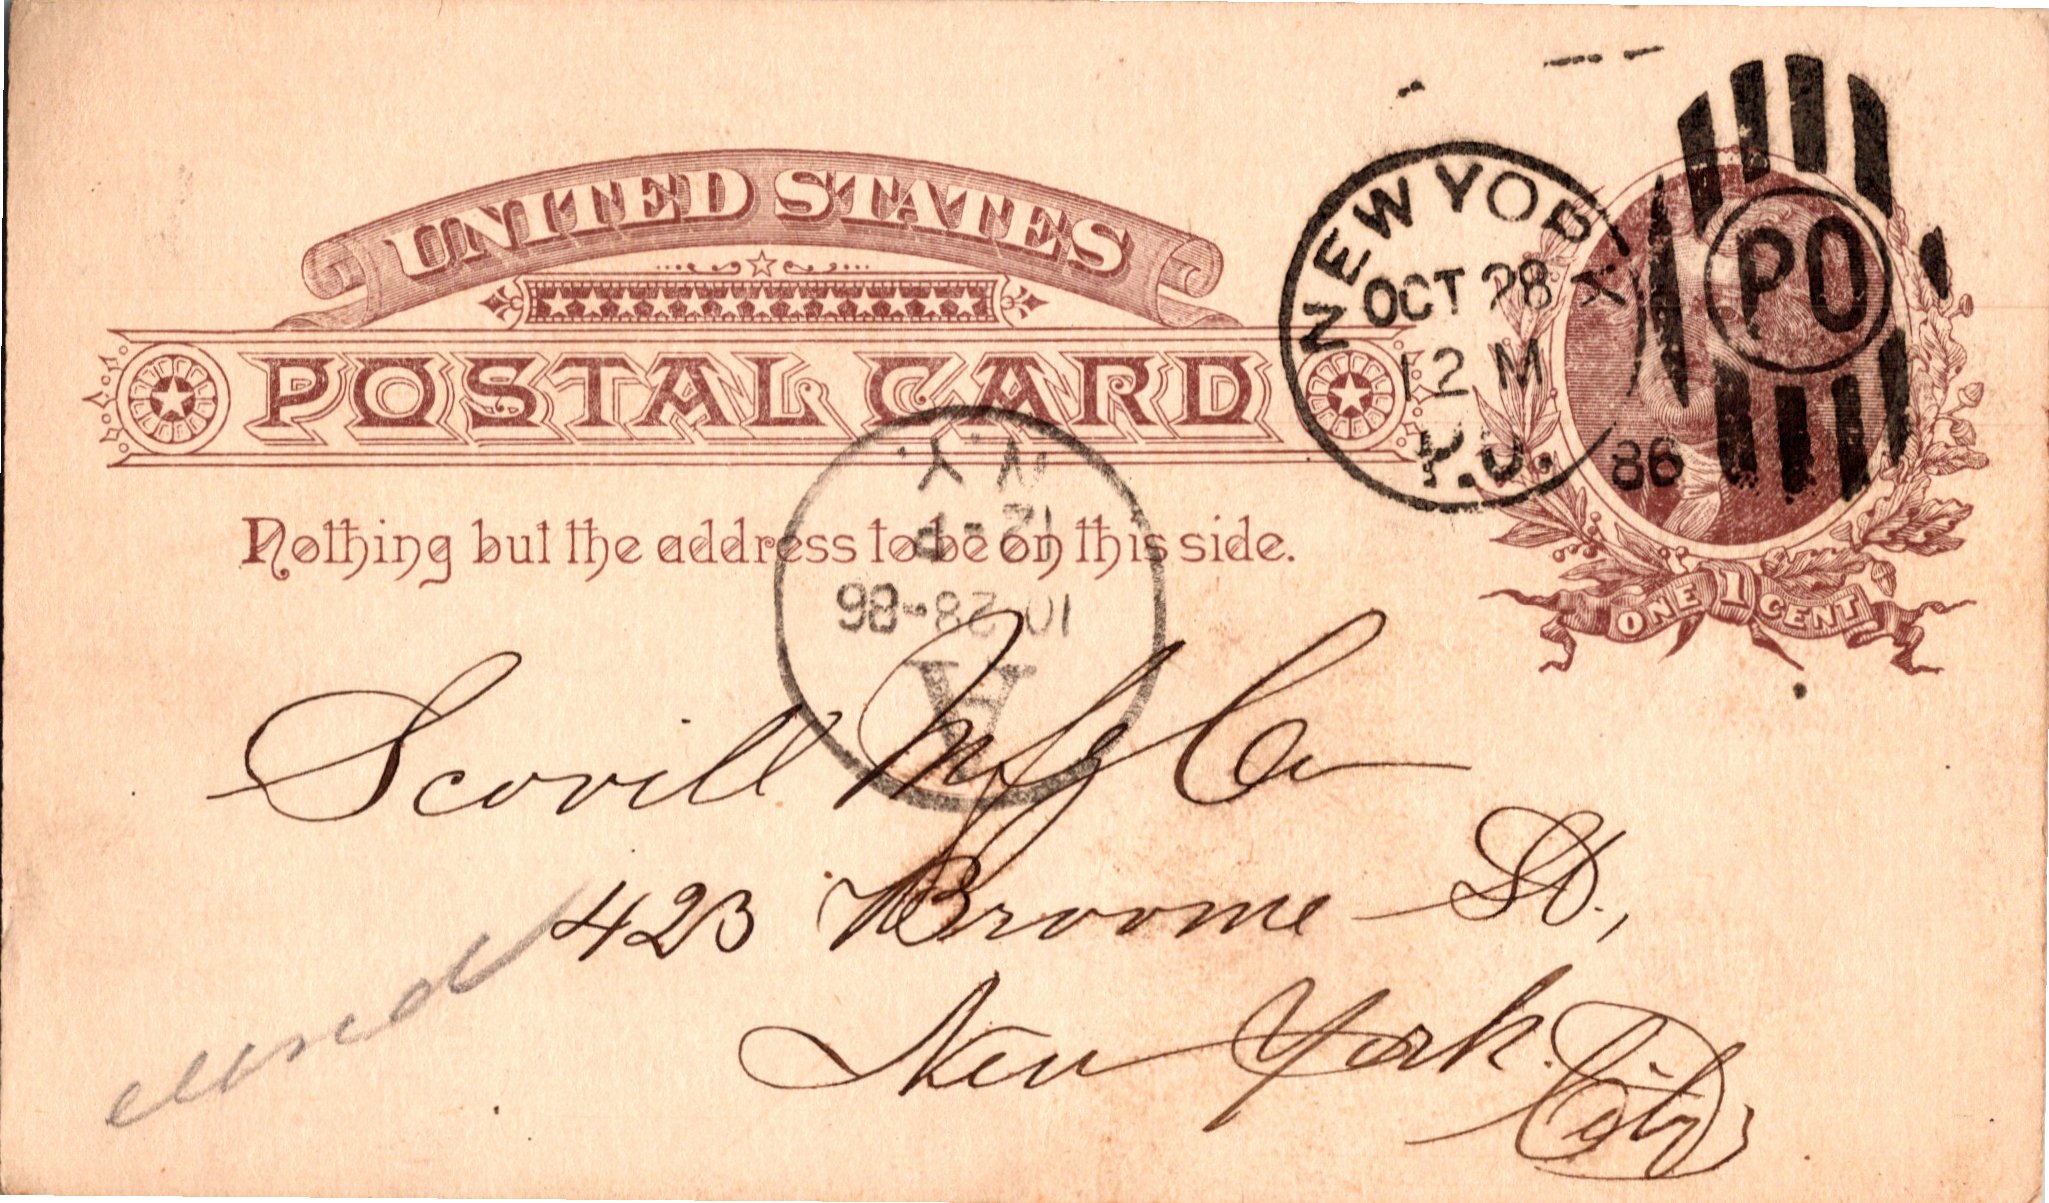 UNITED STATES
POSTAL CARD
Nothing but the address to be on this side.
NEW YORK
OCT 28
12 M
P.O.
86
PO
ONE 1 CENT
N.Y.
12-P
10-28-86
A
Scovill Mfg Co
423 Broome St.,
New York City